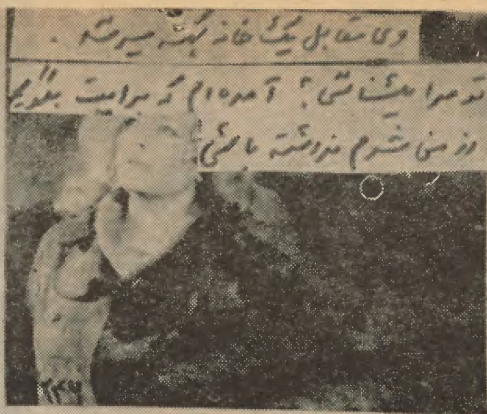 وی مقابل یک خانه کهنه میرسد .
تو مرا میشناسی ؟ آمده ام که برایت بگویم
از من شرم نداشته باشی
۲۳۷